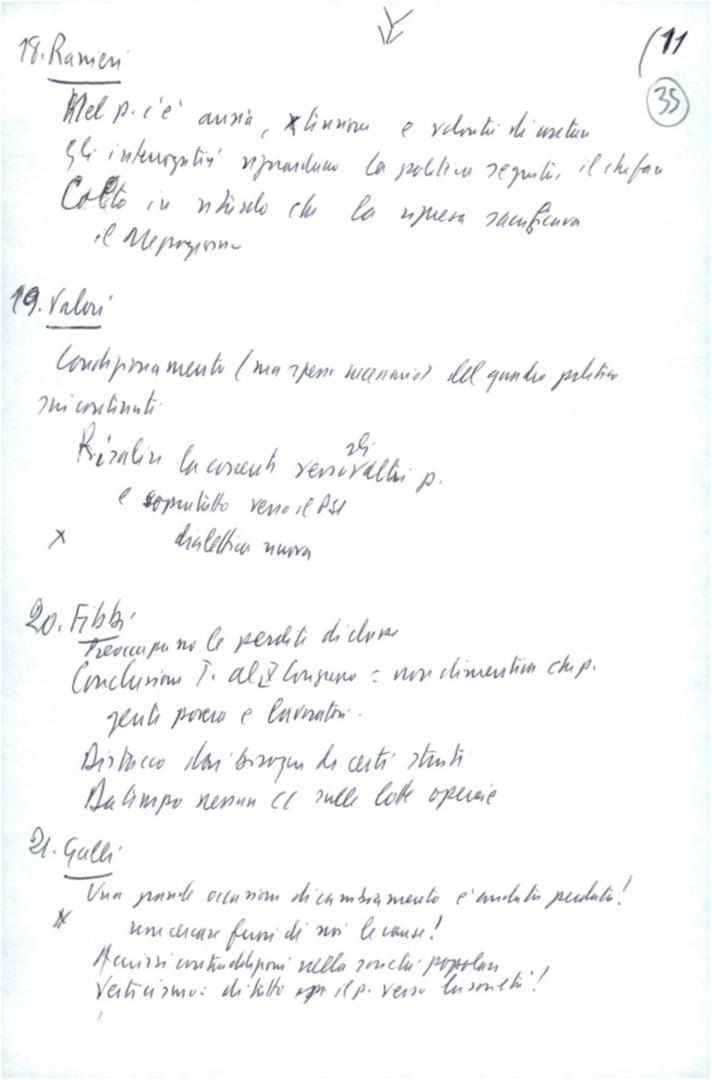 (11
35
18. Ranieri
Nel p. c'è ansia, tensione e volontà di
Gli interrogativi riguardano la politica seguita, il che fare
Colto in ritardo che la ripresa sacrificava
il Mezzogiorno
19. Valori
Condizionamento (ma spesso necessario) del quadro politico
sui contenuti
la correnti verso gli altri p.
e soprattutto verso il PSI
x dialettica nuova
20. Fibbi
Preoccupano le perdite di classe
Conclusioni T. al X Congresso = non dimentica che p.
gente povera e lavoratori.
Distacco dai bisogni di certi strati
Da tempo nessun CC sulle lotte operaie
21. Galli
Una grande occasione di cambiamento è andata perduta!
x non cercare fuori di noi le cause!
Acuirsi contraddizioni nella società popolare
Verticismo: di tutto il p. verso la società!